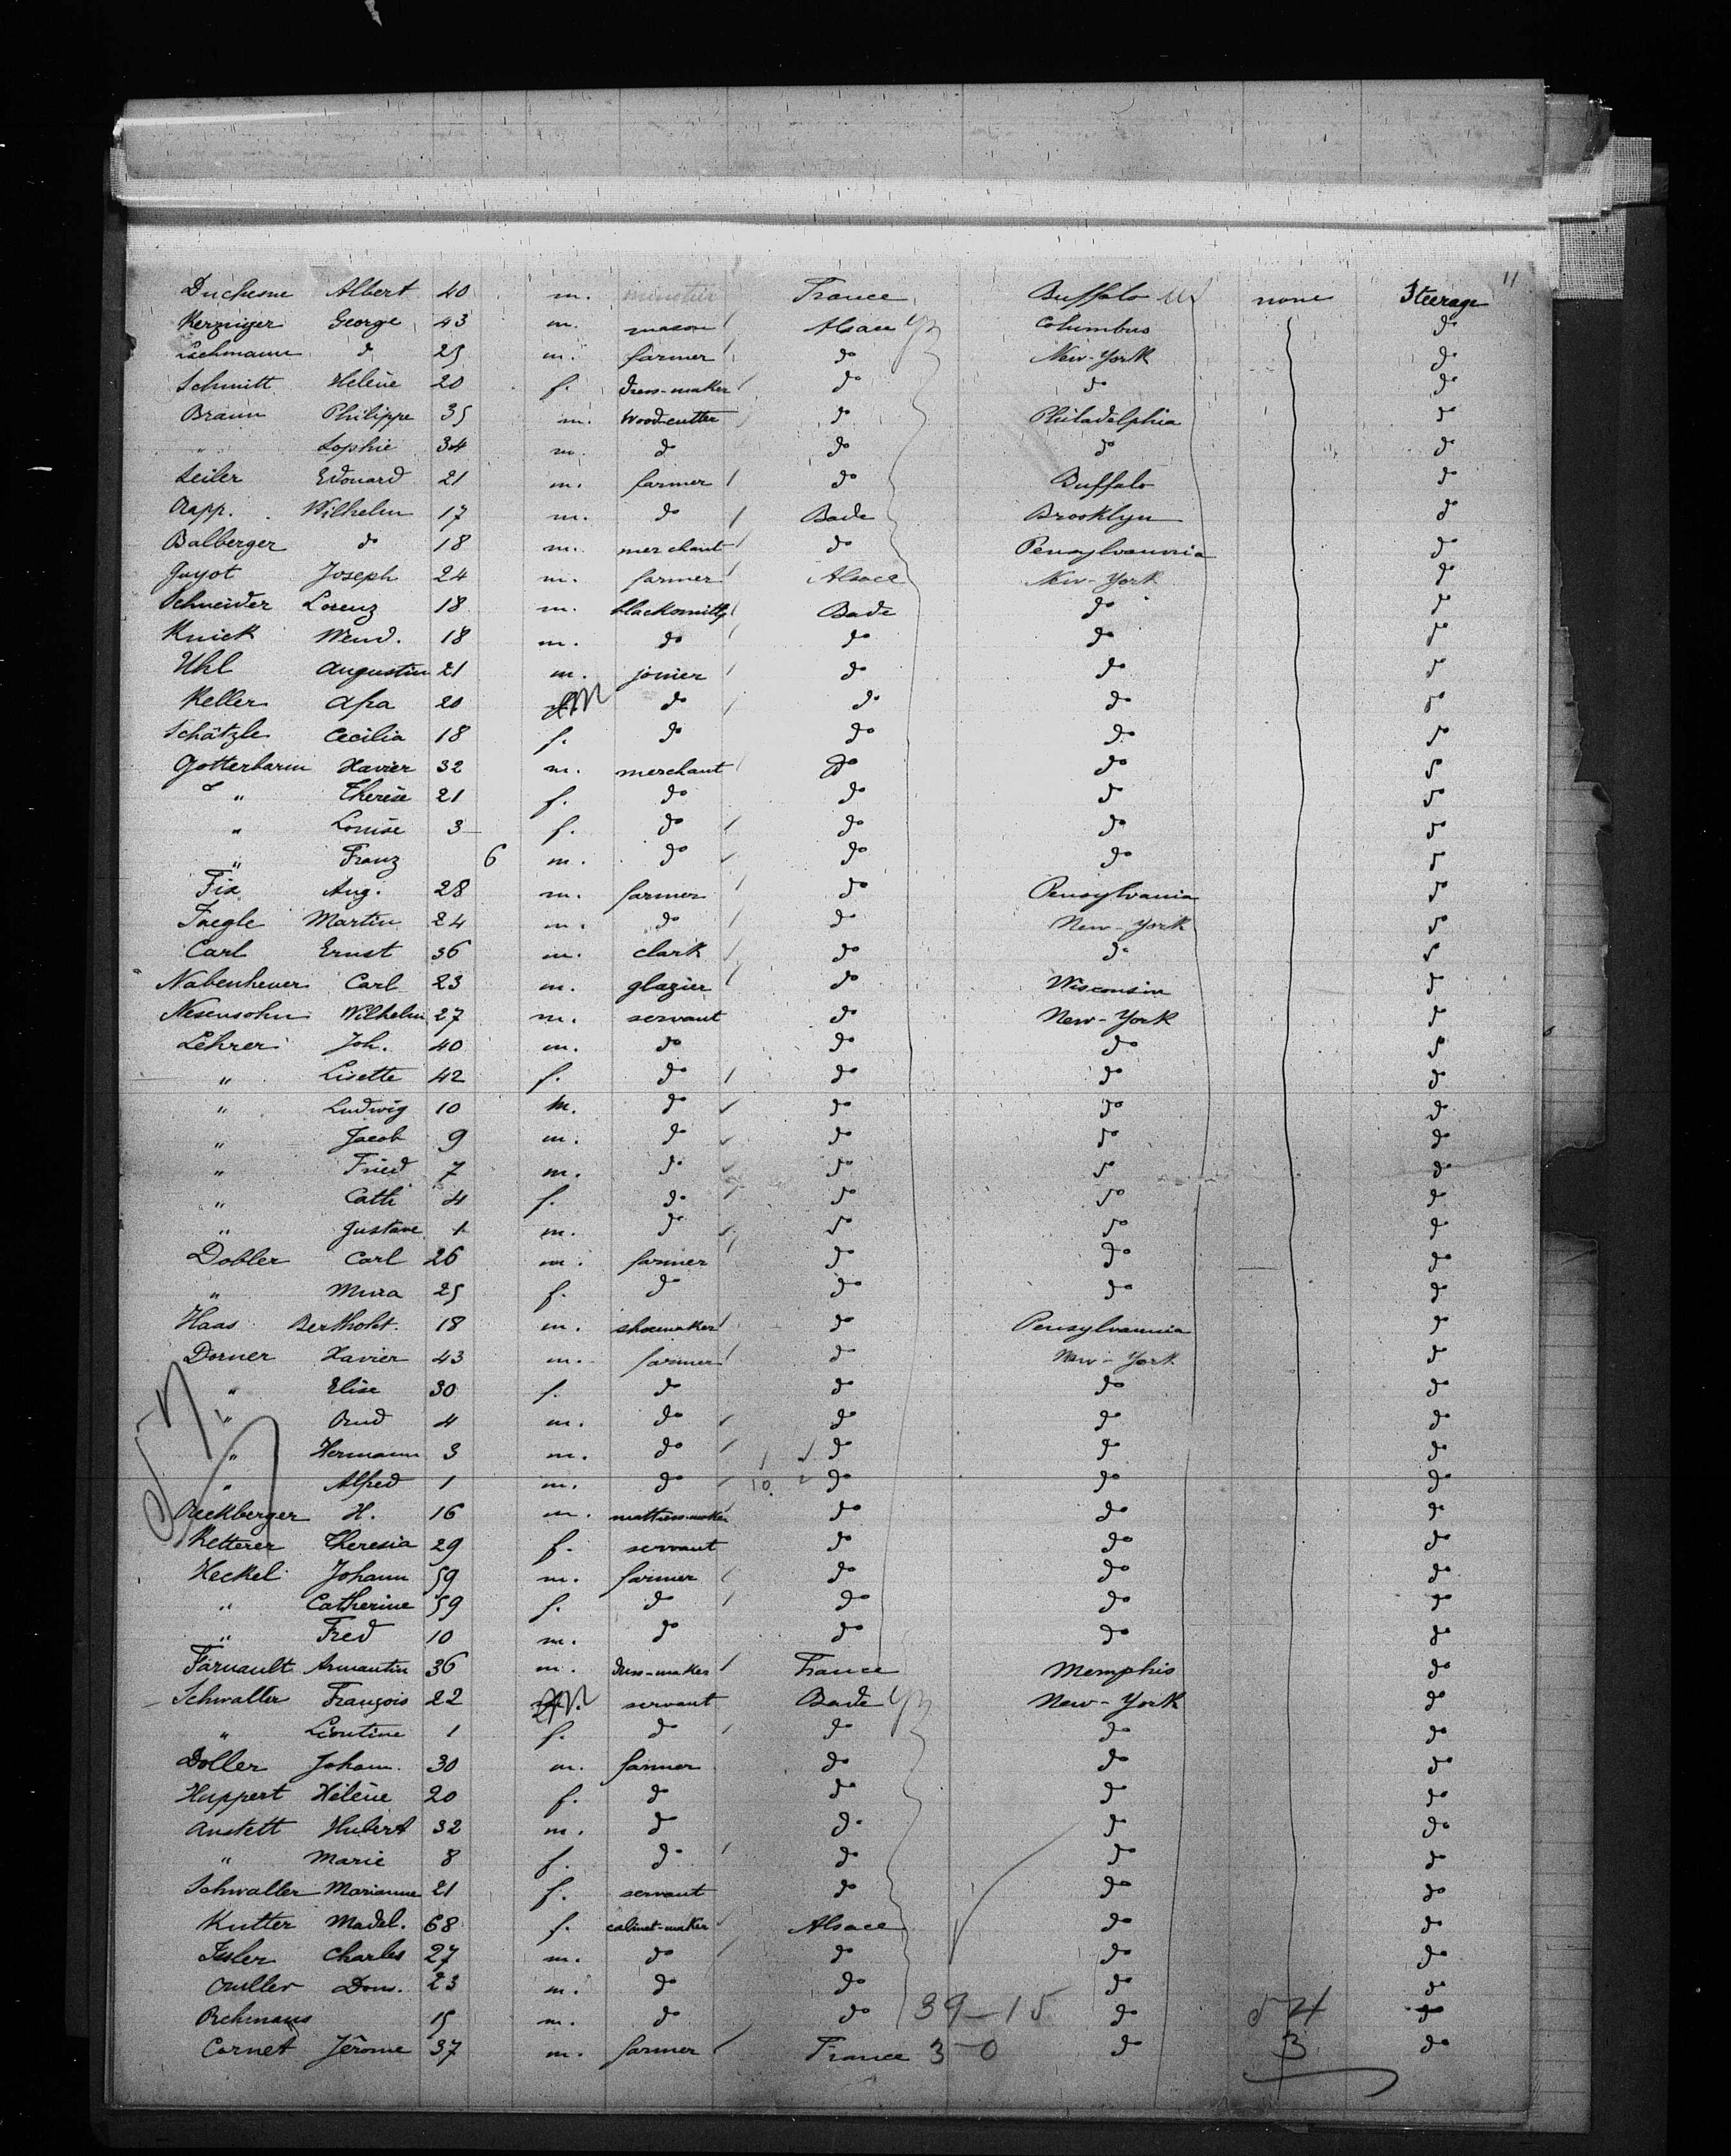 11
Duchesne Albert 40 m. France Buffalo none Steerage
Kerzniger George 43 m. mason Alsace Columbus do
Lachmann do 25 m. farmer do New-York do
Schmitt Helène 20 f. dress-maker do do do
Braun Philippe 35 m. Wood-cutter do Philadelphia do
" Sophie 34 m. do do do do
Seiler Edouard 21 m. farmer do Buffalo do
Rapp. Wilhelm 17 m. do Bade Brooklyn do
Balberger do 18 m. merchant do Pensylvannia do
Guyot Joseph 24 m. farmer Alsace New-York do
Schneider Lorenz 18 m. blacksmith Bade do do
Knick Wend. 18 m. do do do do
Uhl Augustin 21 m. joiner do do do
Keller Afra 20 M do do do do
Schätzle Cecilia 18 f. do do do do
Gotterbarm Xavier 32 m. merchant do do do
" Therèse 21 f. do do do do
" Louise 3 f. do do do do
" Franz 6 m. do do do do
Fix Aug. 28 m. farmer do Pensylvania do
Jaegle Martin 24 m. do do New-York do
Carl Ernst 36 m. clark do do do
Nabenheuer Carl 23 m. glazier do Wisconsin do
Nesensohn Wilhelm 27 m. servant do New-York do
Lehrer Joh. 40 m. do do do do
" Lisette 42 f. do do do do
" Ludwig 10 m. do do do do
" Jacob 9 m. do do do do
" Fried 7 m. do do do do
" Cath 4 f. do do do do
" Gustave 1 m. do do do do
Dobler Carl 26 m. farmer do do do
" 25 f. do do do do
Haas Berthold. 18 m. shoemaker do Pensylvannia do
Dorner Xavier 43 m. farmer do New-York do
" Elise 30 f. do do do do
" Rud 4 m. do do do do
" Hermann 3 m. do do do do
" Alfred 1 m. do 10 do do do
Reckberger H. 16 m. mattress-maker do do do
Ketterer Theresia 29 f. servant do do do
Heckel Johann 59 m. farmer do do do
" Catherine 59 f. do do do do
" Fred 10 m. do do do do
Farnault Armantin 36 m. dress-maker France Memphis do
Schwaller François 22 M. servant Bade New-York do
" Léontine 1 f. do do do do
Doller Johann. 30 m. farmer do do do
Huppert Hélène 20 f. do do do do
Anstett Hubert 32 m. do do do do
" Marie 8 f. do do do do
Schwaller Marianne 21 f. servant do do do
Kutter Madel. 68 f. cabinet-maker Alsace do do
Charles 27 m. do do do do
Dom. 23 m. do do do do
15 m. do do 39-15 do 54 do
Cornet Jérome 37 m. farmer France 3-0 do 3 do